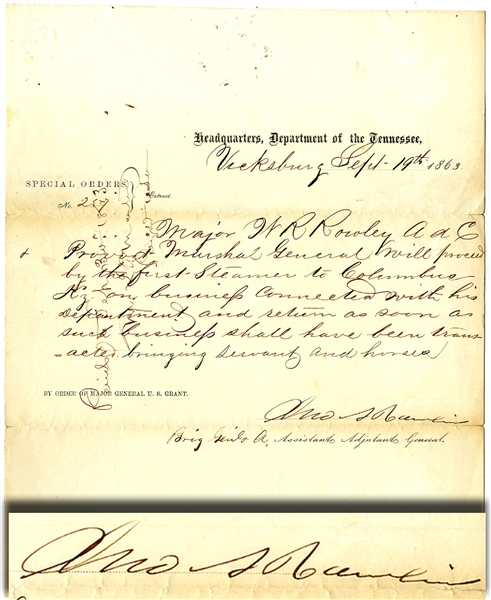 Headquarters, Department of the Tennessee,
Vicksburg Sept 19th 1863
SPECIAL ORDERS
No.
Extract
Major W R Rowley A d C
& Provost Marshal General will proceed
by the first Steamer to Columbus
Ky on business connected with his
department and return as soon as
such business shall have been trans-
-acted, bringing servant and horses
BY ORDER OF MAJOR GENERAL U. S. GRANT.
Jno A Rawlins
Brig Genl & A, Assistant Adjutant General.
Jno A Rawlins